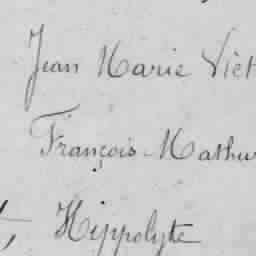 Jean Marie Vict
François Mathur
Hippolyte